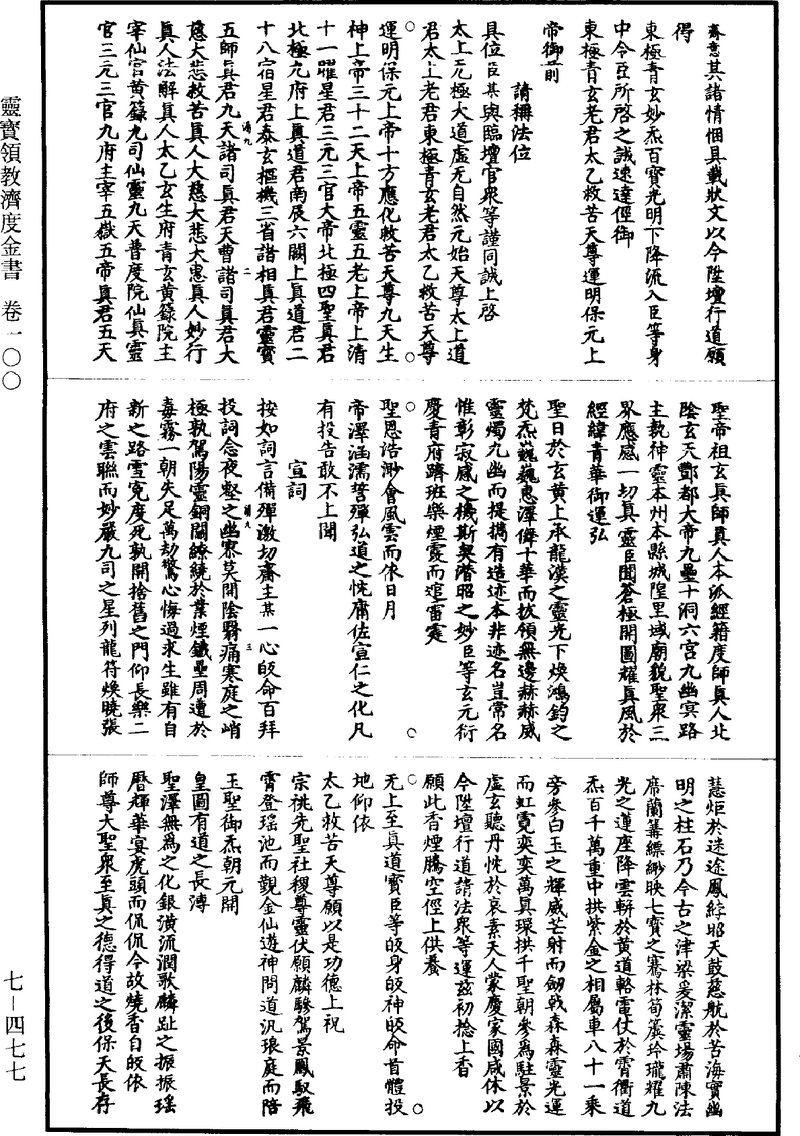 齋意其諸情悃具載狀文以今陞壇行道願
得
東極青玄妙炁百寶光明下降流入臣等身
中令臣所啓之誠速達徑御
東極青玄老君太乙救苦天尊運明保元上
帝御前
請稱法位
具位臣某與臨壇官衆等謹同誠上啓
太上无極大道虛无自然元始天尊太上道
君太上老君東極青玄老君太乙救苦天尊
運明保元上帝十方應化救苦天尊九天生
神上帝三十二天上帝五靈五老上帝上清
十一曜星君三元三官大帝北極四聖眞君
北極九府上眞道君南辰六闕上眞道君二
十八宿星君泰玄樞機三省諸相眞君靈寳
五師眞君九天諸司眞君天曹諸司眞君大
慈大悲救苦眞人大慈大悲大惠眞人妙行
眞人法解眞人太乙玄生府青玄黃籙院主
宰仙官黃籙九司仙靈九天普度院仙眞靈
官三元三官九府主宰五嶽五帝眞君五天
聖帝祖玄眞師眞人本派經籍度師眞人北
陰玄天酆都大帝九壘十洞六宮九幽冥路
主執神靈本州本縣城隍里域廟貌聖衆三
界應感一切眞靈臣聞蒼極開圖耀眞風於
經緯青華御運弘
聖日於玄黃上承龍漢之靈光下煥鴻鈞之
梵炁巍巍惠澤僻十華而拔領無邊赫赫威
靈燭九幽而提攜有造迹本非迹名豈常名
惟彰寂感之機斯契潛昭之妙臣等玄元衍
慶青府躋班樂煙霞而逭雷霆
聖恩浩渺會風雲而依日月
帝澤涵濡誓殫弘道之忱庸佐宣仁之化凡
有投告敢不上聞
宣詞
按如詞言備殫激切齋主某一心皈命百拜
投詞念夜壑之幽寥莫開陰翳痛寒庭之峭
極孰駕陽靈銅闗繚繞於業煙鐵壘周遭於
毒霧一朝失足萬劫驚心悔過求生雖有自
新之路雪寃度死孰開捨舊之門仰長樂二
府之雲聯而妙嚴九司之星列龍符煥曉張
慧炬於迷途鳳綍昭天鼓慈航於苦海實幽
明之柱石乃今古之津梁爰潔靈場肅陳法
席蘭篝縹緲映七寶之騫林筍簴玲瓏耀九
光之蓮座降雲軿於黃道輅電仗於霄衢道
炁百千萬重中拱紫金之相屬車八十一乘
旁參白玉之輝威芒射而劒戟森森靈光運
而虹霓奕奕萬眞環拱千聖朝參爲駐景於
虛玄聽丹忱於哀素天人蒙慶家國咸休以
今陞壇行道請法衆等運茲初捻上香
願此香煙騰空徑上供養
无上至眞道寳臣等皈身皈神皈命首體投
地仰依
太乙救苦天尊願以是功德上祝
宗祧先聖社稷尊靈伏願麟驂駕景鳳馭飛
霄登瑤池而觀金仙遊神問道汎琅庭而陪
玉聖御炁朝元開
皇圖有道之長溥
聖澤無爲之化銀潢流潤歌麟趾之振振瑤
曆輝華宴虎頭而侃侃今故燒香自皈依
師尊大聖衆至眞之德得道之後保天長存
靈寶領教濟度金書 卷一〇〇
七－四七七